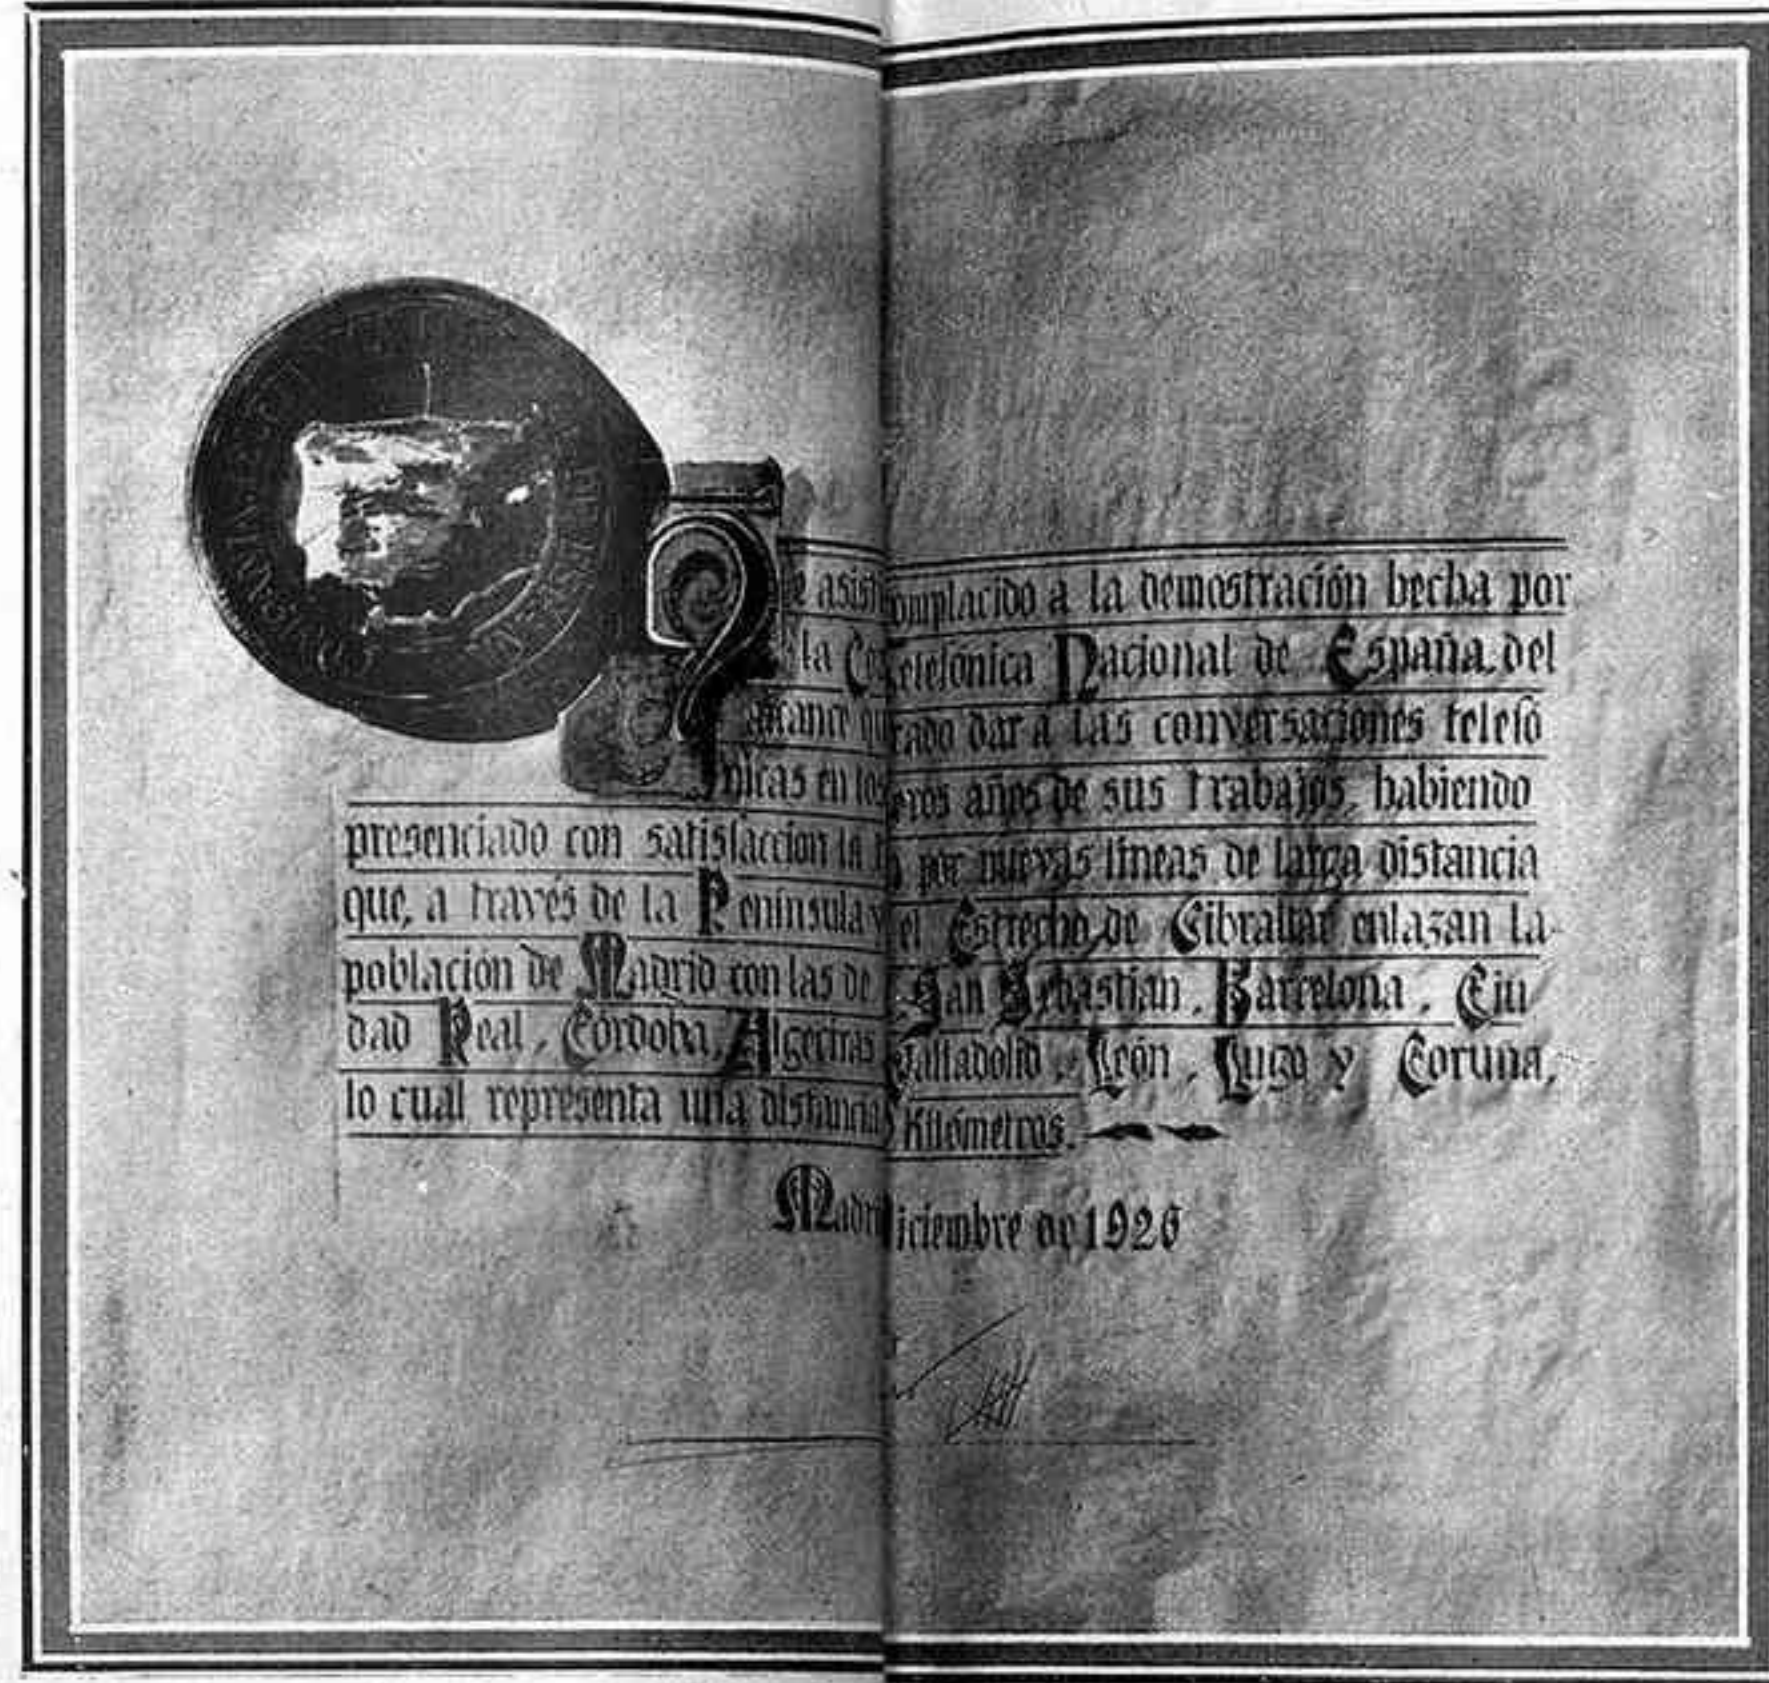 e asis omplacido a la demostración hecha por
la Co elefónica Nacional de España, del
alcance qu rado dar a las conversaciones telefó
nicas en los eros años de sus trabajos, habiendo
presenciado con satisfacción la por nuevas líneas de larga distancia
que, a través de la Península y el Estrecho de Gibraltar enlazan la
población de Madrid con las de San Sebastián, Barcelona, Ciu
dad Real, Córdoba, Algeciras Valladolid, León, Lugo y Coruña,
lo cual representa una distancia Kilómetros.
Madri iciembre de 1926